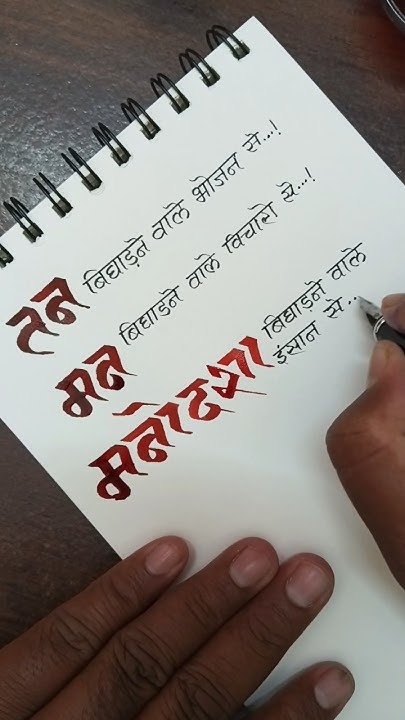 तन बिघाड़ने वाले भोजन से...!
मन बिघाडने वाले विचारो से...!
मनोदशा बिघाड़ने वाले
इंसान से..